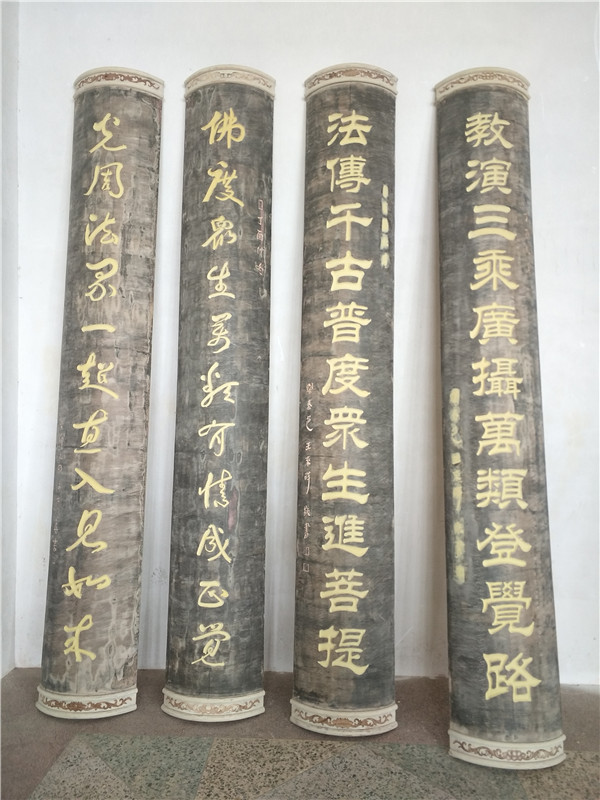 教演三乘廣攝萬類登覺路
法傳千古普度眾生進菩提
佛度眾生萬類有情成正覺
光周法界一超直入見如來